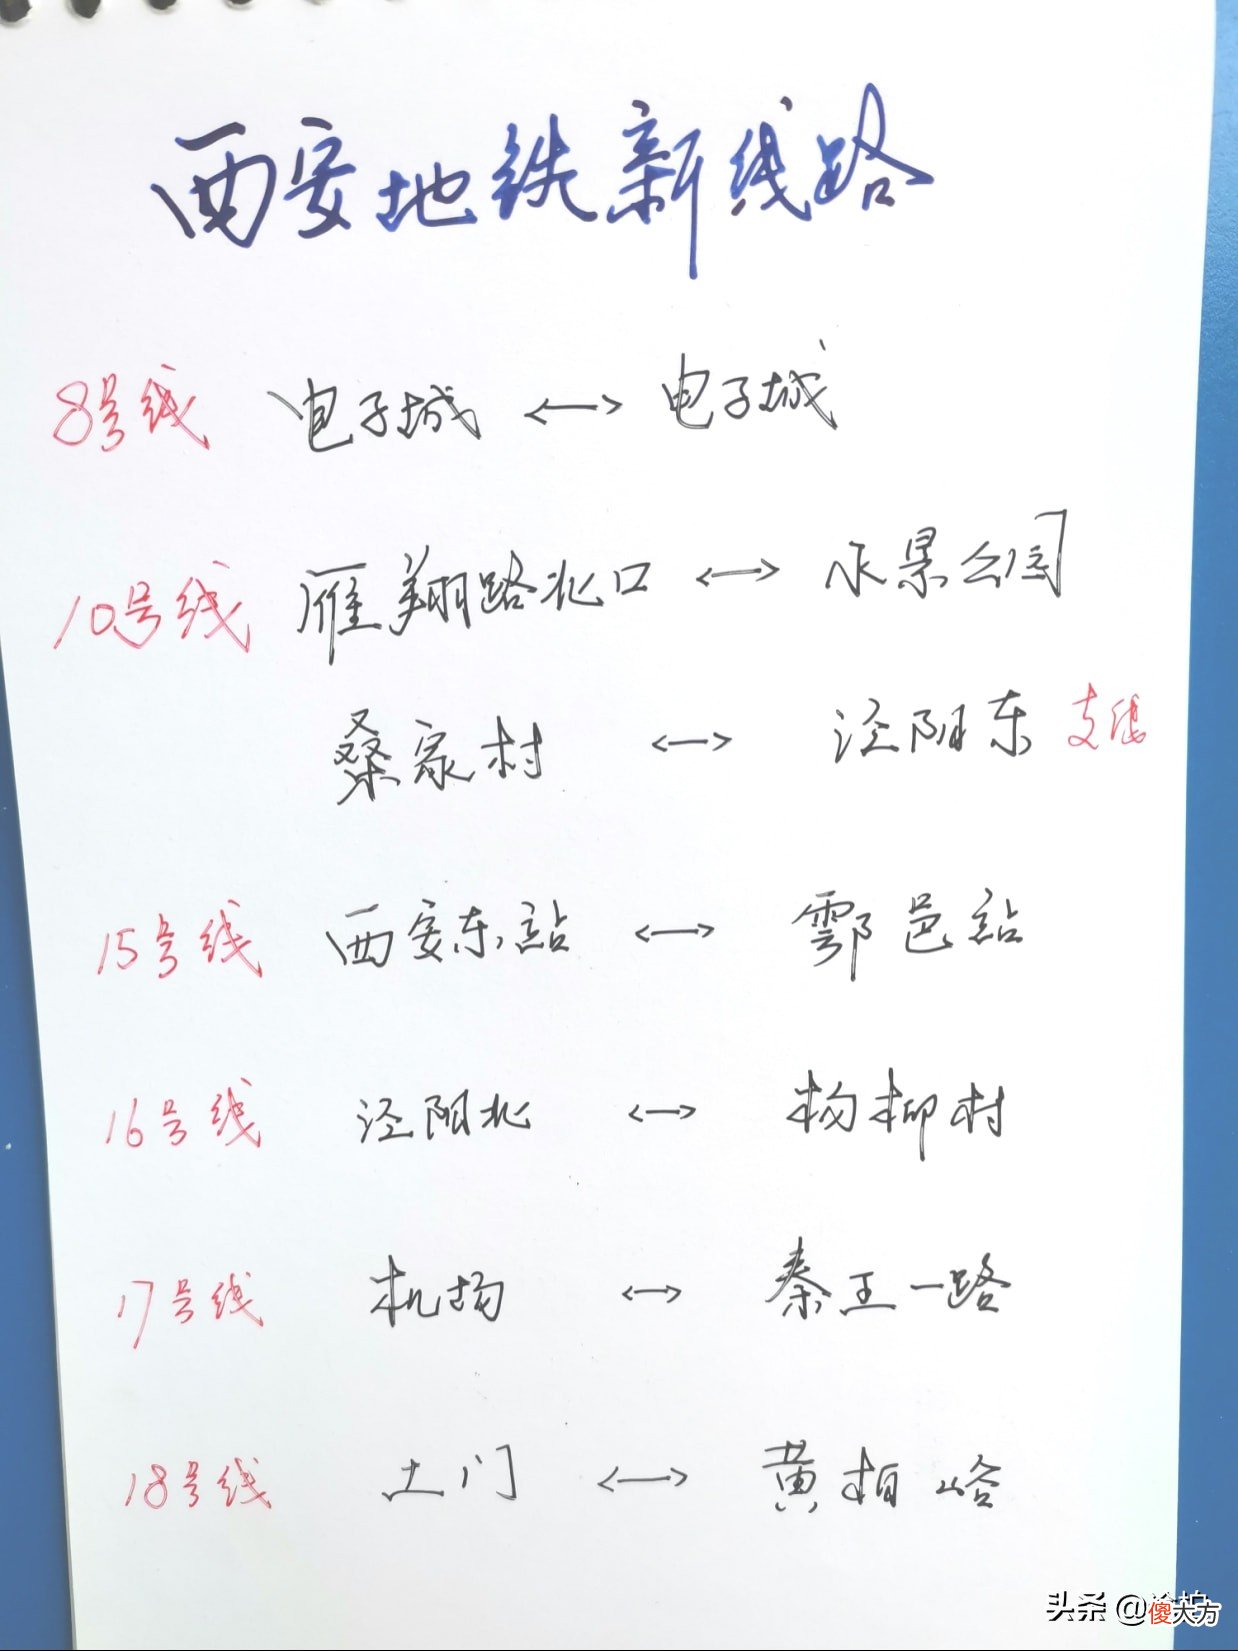 西安地铁新线路
8号线 电子城 ←→ 电子城
10号线 雁翔路北口 ←→ 水景公园
桑家村 ←→ 泾阳东 支线
15号线 西安东站 ←→ 鄠邑站
16号线 泾阳北 ←→ 杨柳村
17号线 机场 ←→ 秦王一路
18号线 土门 ←→ 黄柏峪
头条 @
傻大方